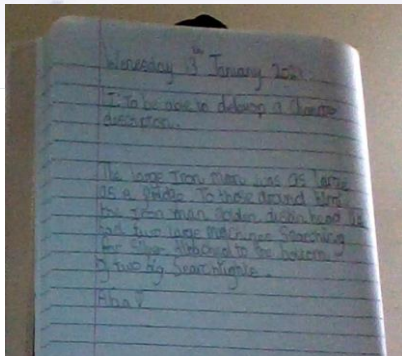 Wenesday 13th January 2021.
I: To be able to delevop a
discription.
The large Iron man was as large
as a To those around him
the Iron man golden dustin head he
had two large machines Searching
for Silver Attached to the bottom
of two big Searchlights.